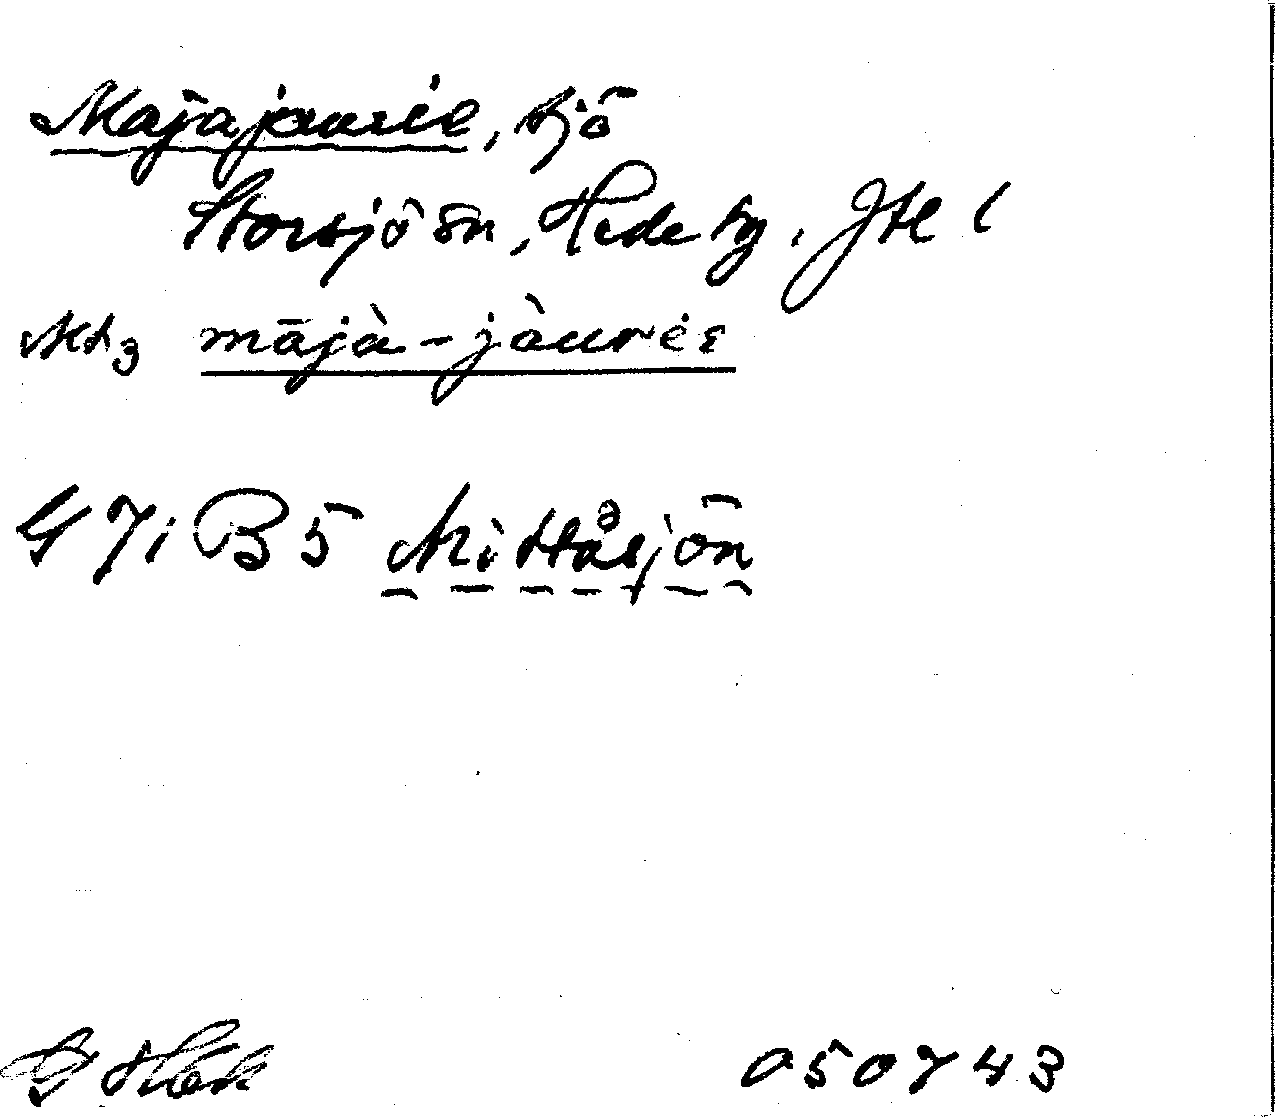 Majajaurie, sjö
Storsjö sn, Hede tg, Jtl l
mājà-jàurіe
G 7i B5 Mittåsjön
050743